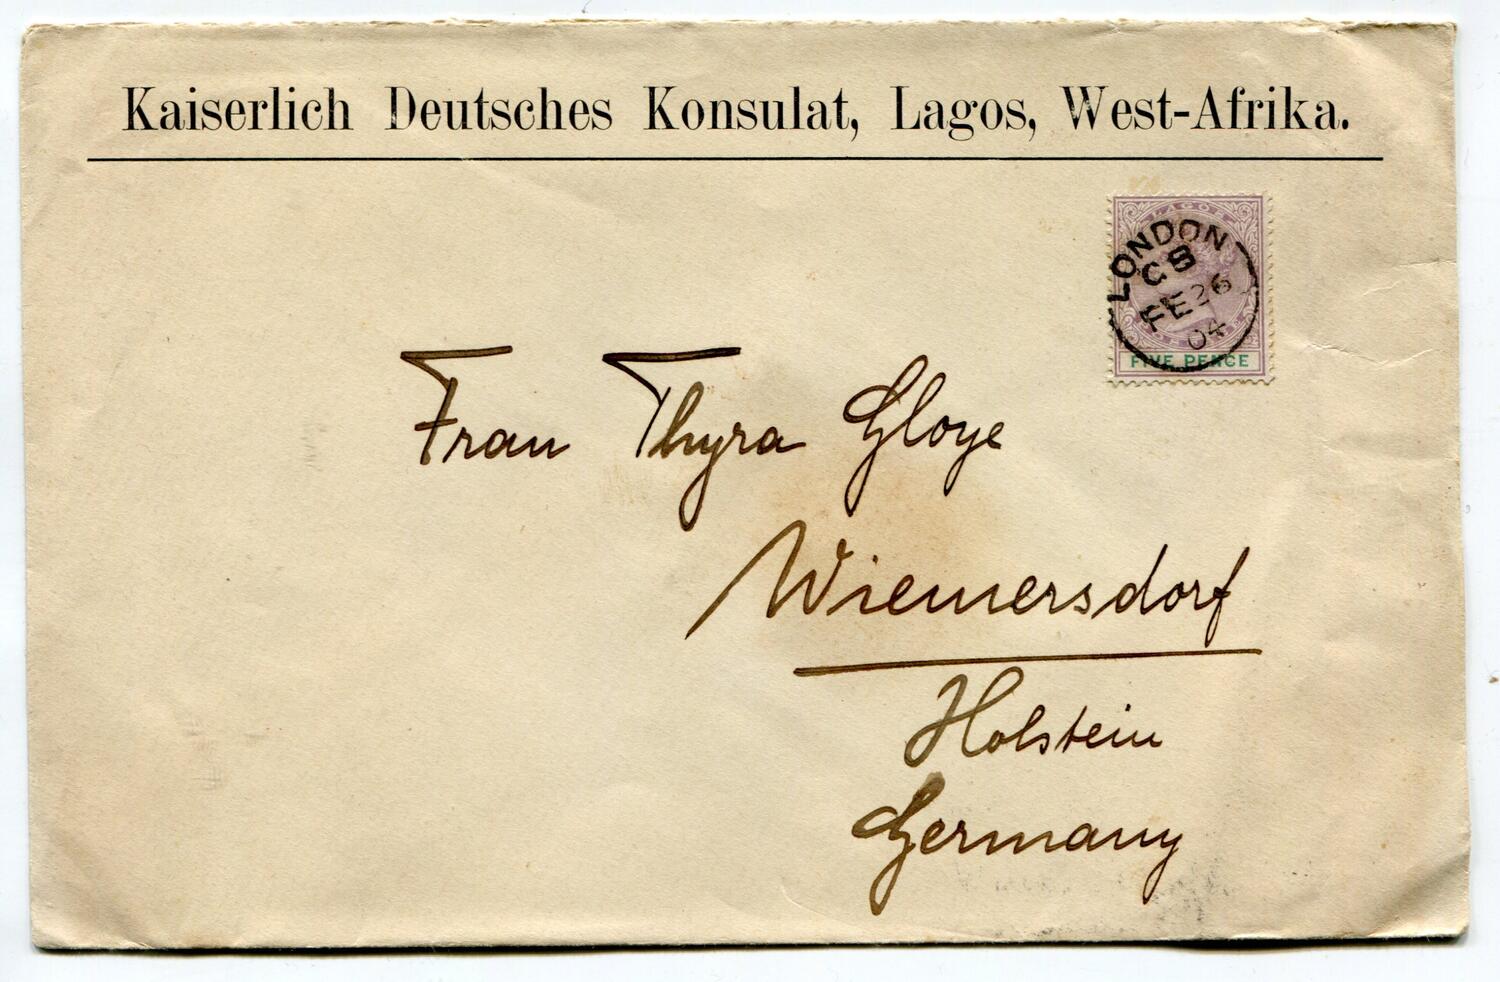 Kaiserlich Deutsches Konsulat, Lagos, West-Afrika.
LAGOS
LONDON
CB
FE 26
04
FIVE PENCE
Frau Thyra Gloye
Wiemersdorf
Holstein
Germany